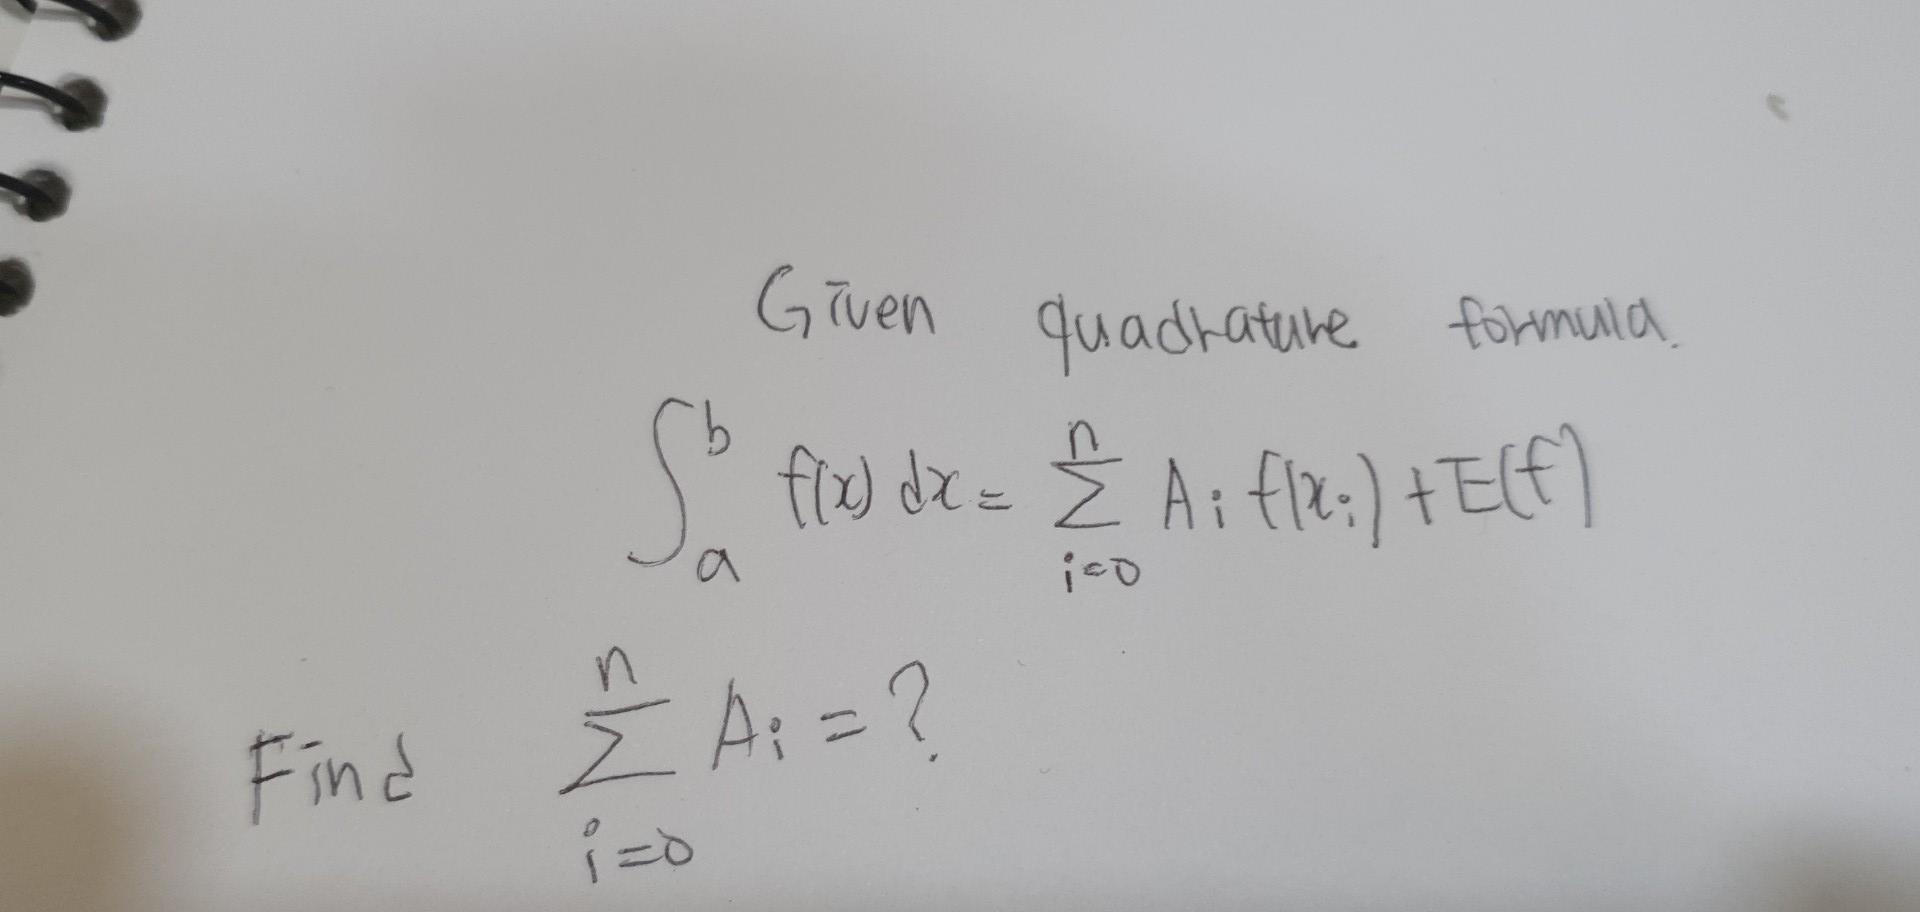 Given quadrature formula.
∫_a^b f(x) dx = Σ_{i=0}^n A_i f(x_i) + E(f)
Find Σ_{i=0}^n A_i = ?